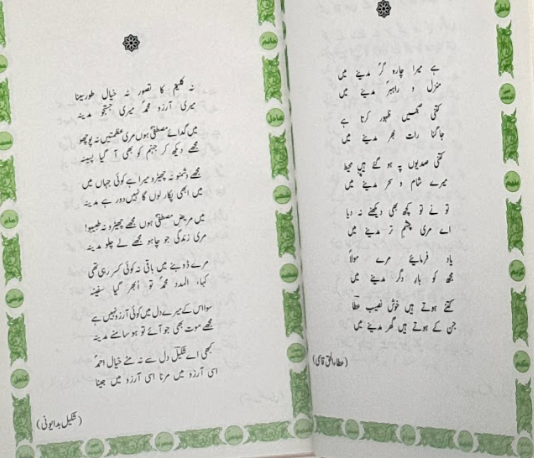 ہے میرا چارہ گر مدینے میں
منزل و راہبر مدینے میں
کتنی صبحیں ظہور کرتا ہے
جاگنا رات بھر مدینے میں
کتنی صدیوں پہ ہو گئے ہیں محیط
میرے شام و سحر مدینے میں
تو نے تو کچھ بھی دیکھنے نہ دیا
اے مری چشم تر مدینے میں
یاد فرمائیے مرے مولاؐ
مجھ کو بار دگر مدینے میں
کتنے ہوتے ہیں خوش نصیب عطاؔ
جن کے ہوتے ہیں گھر مدینے میں
(عطاء الحق قاسمی)
نہ کلیم کا تصور نہ خیال طور سینا
میری آرزو محمدؐ میری جستجو مدینہ
میں گدائے مصطفیؐ ہوں مری عظمتیں نہ پوچھو
مجھے دیکھ کر جہنم کو بھی آ گیا پسینہ
مجھے دشمنو نہ چھیڑو میرا ہے کوئی جہاں میں
میں ابھی پکار لوں گا نہیں دور ہے مدینہ
میں مریض مصطفیؐ ہوں مجھے چھیڑو نہ طبیبو!
مری زندگی جو چاہو مجھے لے چلو مدینہ
مرے ڈوبنے میں باقی نہ کوئی کسر رہی تھی
کہا، المدد محمدؐ تو ابھر گیا سفینہ
سوا اس کے میرے دل میں کوئی آرزو نہیں ہے
مجھے موت بھی جو آئے تو ہو سامنے مدینہ
کبھی اے شکیلؔ دل سے نہ مٹے خیال احمدؐ
اسی آرزو میں مرنا اسی آرزو میں جینا
(شکیل بدایونی)